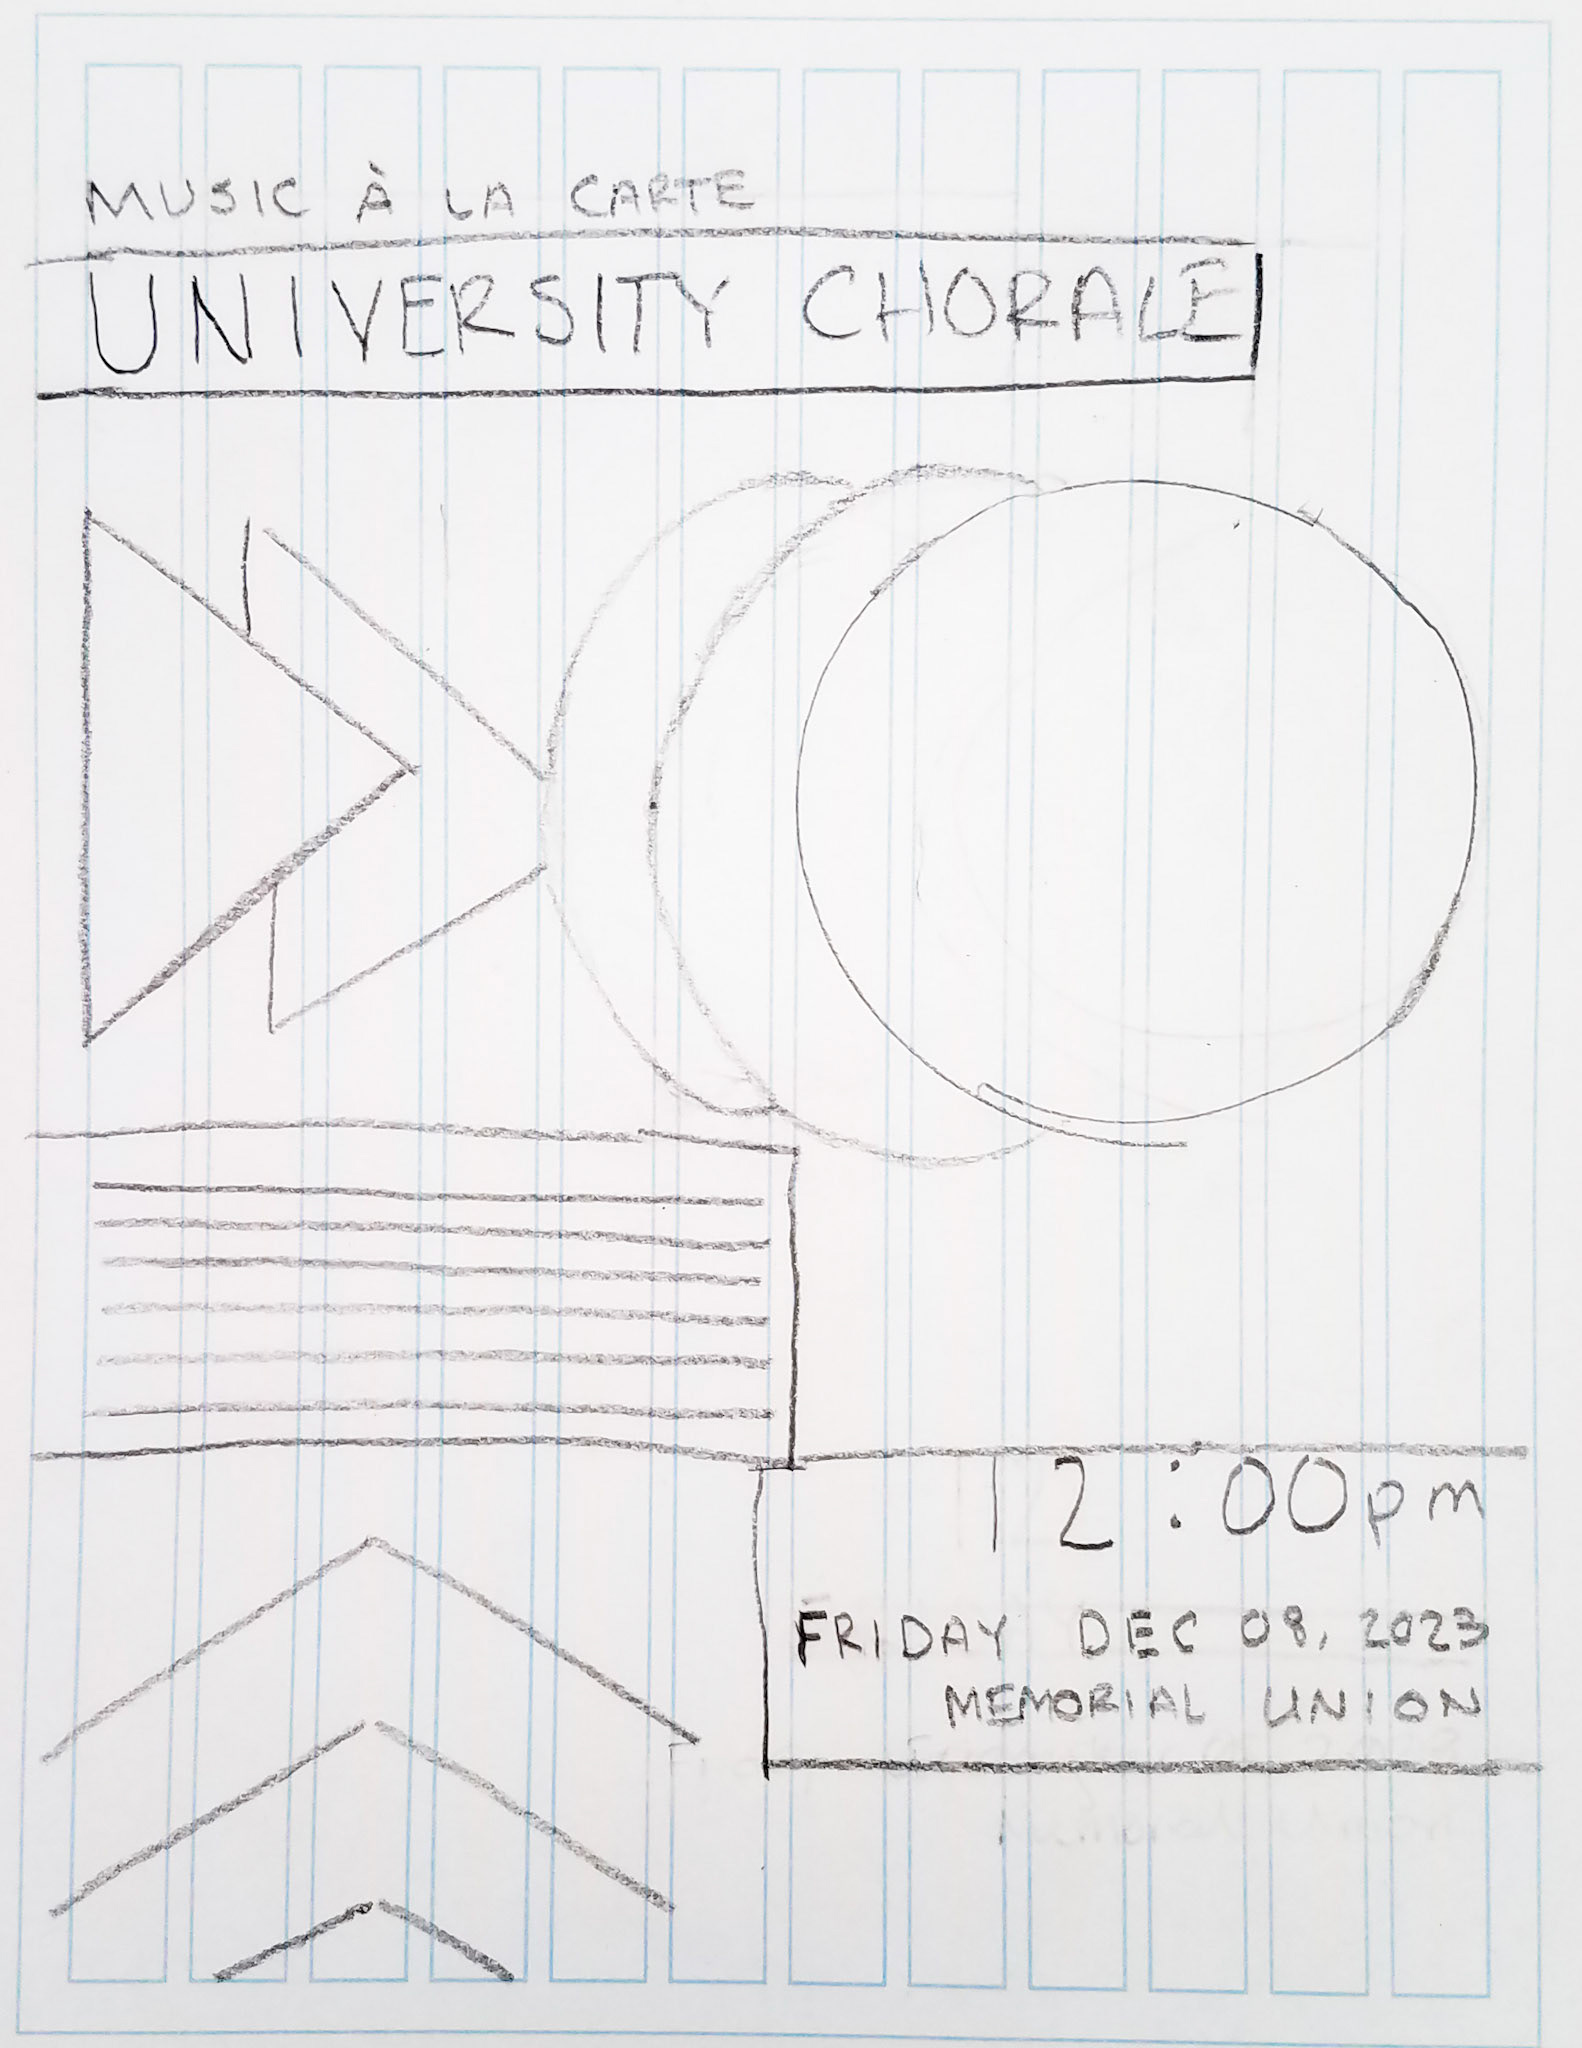 MUSIC À LA CARTE
UNIVERSITY CHORALE
12:00pm
FRIDAY DEC 08, 2023
MEMORIAL UNION